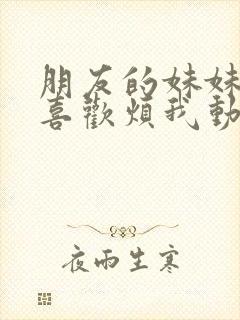 朋友的妹妹
喜歡煩我動
夜雨生寒